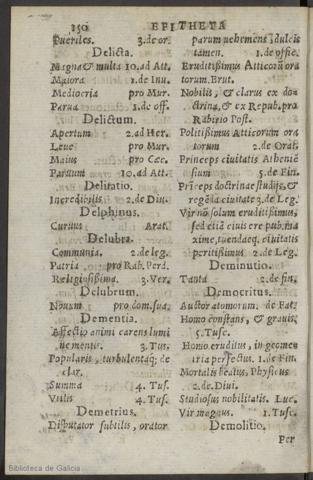 150 EPITHETA
Pueriles. 3.de or.
Delicta.
Magna & multa 10.ad Att.
Maiora 1.de Inu.
Mediocria pro Mur.
Parua 1.de off.
Delictum.
Apertum 2.ad Her.
Leue pro Mur.
Maius pro Cæc.
Paruum 10.ad Att.
Delitatio.
Incredibilis 2.de Diu.
Delphinus.
Curuus Arat.
Delubra.
Communia. 2.de leg.
Patria pro Rab. Perd.
Religiosissima. 3.Ver.
Delubrum.
Nouum pro dom.sua.
Dementia.
Affectio animi carens lumi
ne mentis 3.Tus.
Popularis, turbulentaq; de
clar.
Summa 4. Tus.
Vilis 4. Tus.
Demetrius.
Disputator subtilis, orator
parum vehemens, dulcis
tamen. 1.de offic.
Eruditissimus Atticorũ ora
torum.Brut.
Nobilis, & clarus ex do
ctrina, & ex Repub.pro
Rabirio Post.
Politissimus Atticorum ora
torum 2.de Orat.
Princeps ciuitatis Atheniẽ
sium 5.de Fin.
Prĩceps doctrinæ studijs, &
regẽda ciuitate 3.de Leg.
Vir nõ solum eruditissimus,
sed etiã ciuis ere pub.ma
xime, tuendæq. ciuitatis
peritissimus 2.de Leg.
Deminutio.
Tanta 2.de fin.
Democritus.
Auctor atomorum. de Fat.
Homo constans, & grauis,
5. Tusc.
Homo eruditus, in geome
tria perfectus. 1.de Fin.
Mortalis beatus, Physicus
2.de.Diui.
Studiosus nobilitatis. Luc.
Vir magnus. 1. Tusc.
Demolitio.
Per
Biblioteca de Galicia